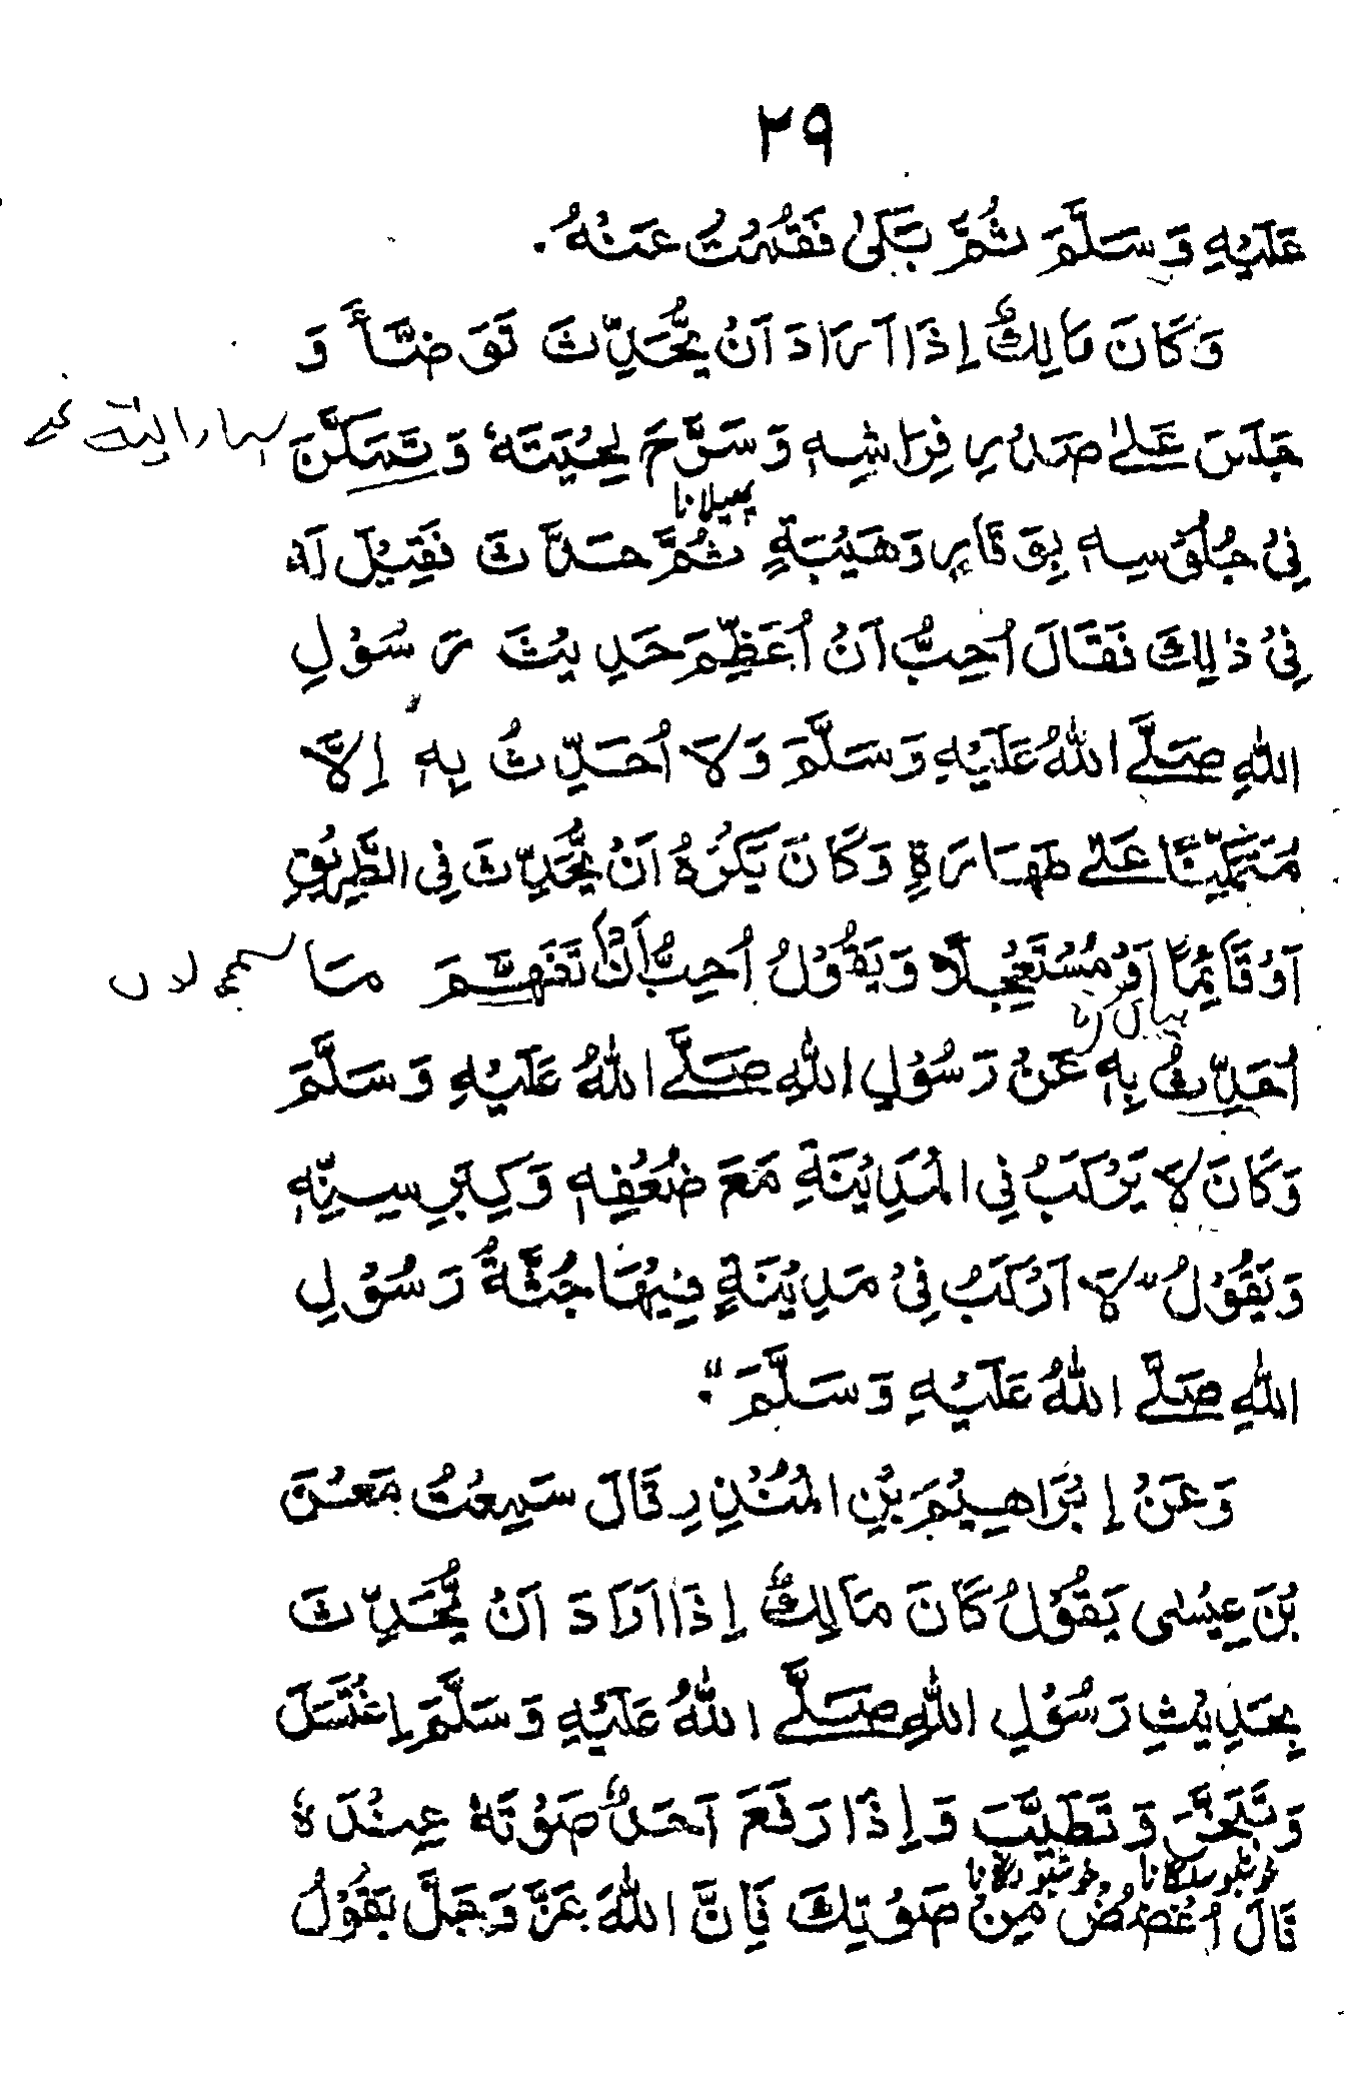 ٢٩
عَلَيْهِ وَسَلَّمَ ثُمَّ بَكَىٰ فَقُمْتُ عَنْهُ.
وَكَانَ مَالِكٌ إِذَا اَرَادَ اَنْ يُّحَدِّثَ تَوَضَّأَ وَ
جَلَسَ عَلٰى صَدْرِ فِرَاشِهٖ وَسَرَّحَ لِحْيَتَهٗ وَتَمَكَّنَ
پھیلانا
فِيْ جُلُوْسِهٖ بِوَقَارٍ وَهَيْبَةٍ ثُمَّ حَدَّثَ فَقِيْلَ لَهٗ
فِيْ ذٰلِكَ فَقَالَ اُحِبُّ اَنْ اُعَظِّمَ حَدِيْثَ رَسُوْلِ
اللهِ صَلَّے اللهُ عَلَيْهِ وَسَلَّمَ وَلَا اُحَدِّثُ بِهٖ إِلَّا
مُتَمَكِّنًا عَلٰے طَهَارَةٍ وَكَانَ يَكْرَهُ اَنْ يُّحَدِّثَ فِي الطَّرِيْقِ
اَوْ قَائِمًا اَوْ مُسْتَعْجِلًا وَيَقُوْلُ اُحِبُّ اَنْ تَفَهَّمَ مَا
اُحَدِّثُ بِهٖ عَنْ رَسُوْلِ اللهِ صَلَّے اللهُ عَلَيْهِ وَسَلَّمَ
وَكَانَ لَا يَرْكَبُ فِي الْمَدِيْنَةِ مَعَ ضُعْفِهٖ وَكِبَرِ سِنِّهٖ
وَيَقُوْلُ "لَا اَرْكَبُ فِيْ مَدِيْنَةٍ فِيْهَا جُثَّةُ رَسُوْلِ
اللهِ صَلَّے اللهُ عَلَيْهِ وَسَلَّمَ".
وَعَنْ إِبْرَاهِيْمَ بْنِ الْمُنْذِرِ قَالَ سَمِعْتُ مَعْنَ
بْنَ عِيْسٰى يَقُوْلُ كَانَ مَالِكٌ إِذَا اَرَادَ اَنْ يُّحَدِّثَ
بِحَدِيْثِ رَسُوْلِ اللهِ صَلَّے اللهُ عَلَيْهِ وَسَلَّمَ إِغْتَسَلَ
وَتَبَخَّرَ وَتَطَيَّبَ وَإِذَا رَفَعَ اَحَدٌ صَوْتَهٗ عِنْدَهٗ
قَالَ اُغْضُضْ مِنْ صَوْتِكَ فَإِنَّ اللهَ عَزَّ وَجَلَّ يَقُوْلُ